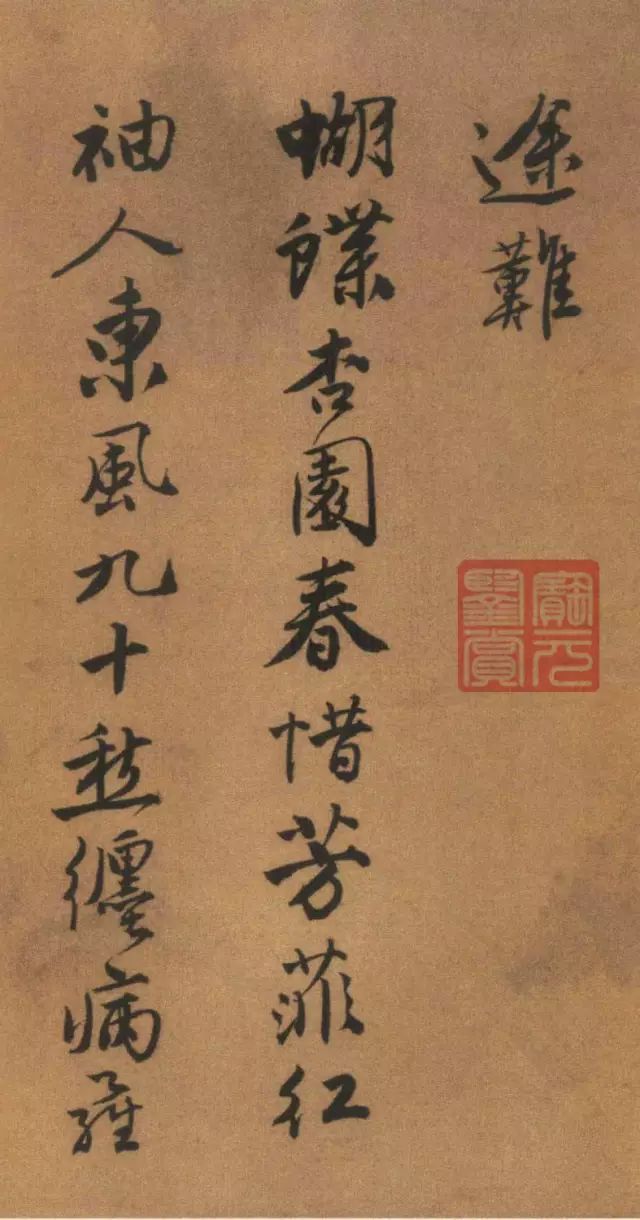 途難
蝴蝶杏園春惜芳菲紅
袖人東風九十愁纏病
寶元
鑒賞